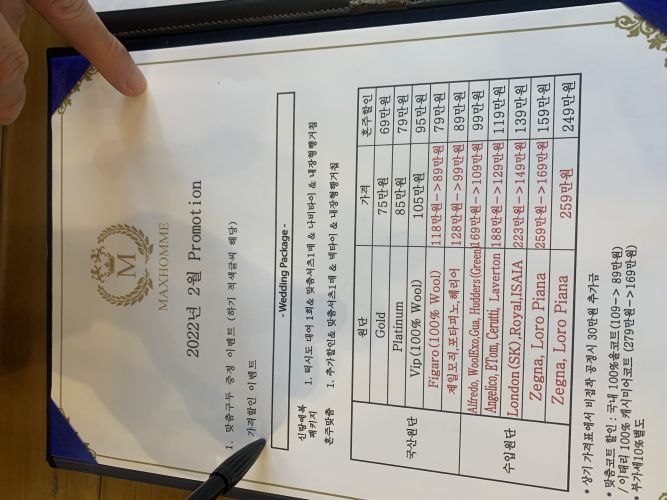 M
MAXHOMME
2022년 2월 Promotion
1. 맞춤구두 증정 이벤트 (하기 적색글씨 해당)
가격할인 이벤트
- Wedding Package -
신랑예복 패키지 1. 턱시도 대여 1회& 맞춤셔츠1매 & 나비타이 & 내장형행거집
혼주맞춤 1. 추가할인& 맞춤셔츠1매 & 넥타이 & 내장형행거집
원단 가격 혼주할인
국산원단
Gold 75만원 69만원
Platinum 85만원 79만원
Vip (100% Wool) 105만원 95만원
Figaro (100% Wool) 118만원->89만원 79만원
제일모직,포타피노,해리어 128만원->99만원 89만원
수입원단
Alfredo, WoolExo,Gua, Hudders(Green) 169만원->109만원 99만원
Angelico, ETom, Cerutti, Laverton 188만원->129만원 119만원
London(SK),Royal,ISAIA 223만원->149만원 139만원
Zegna, Loro Piana 259만원->169만원 159만원
Zegna, Loro Piana 259만원 249만원
* 상기 가격표에서 비접착 공정시 30만원 추가금
* 맞춤코트 할인 : 국내 100%울코트 (109-> 89만원)
/ 이태리 100% 캐시미어코트 (279만원->169만원)
* 부가세10%별도